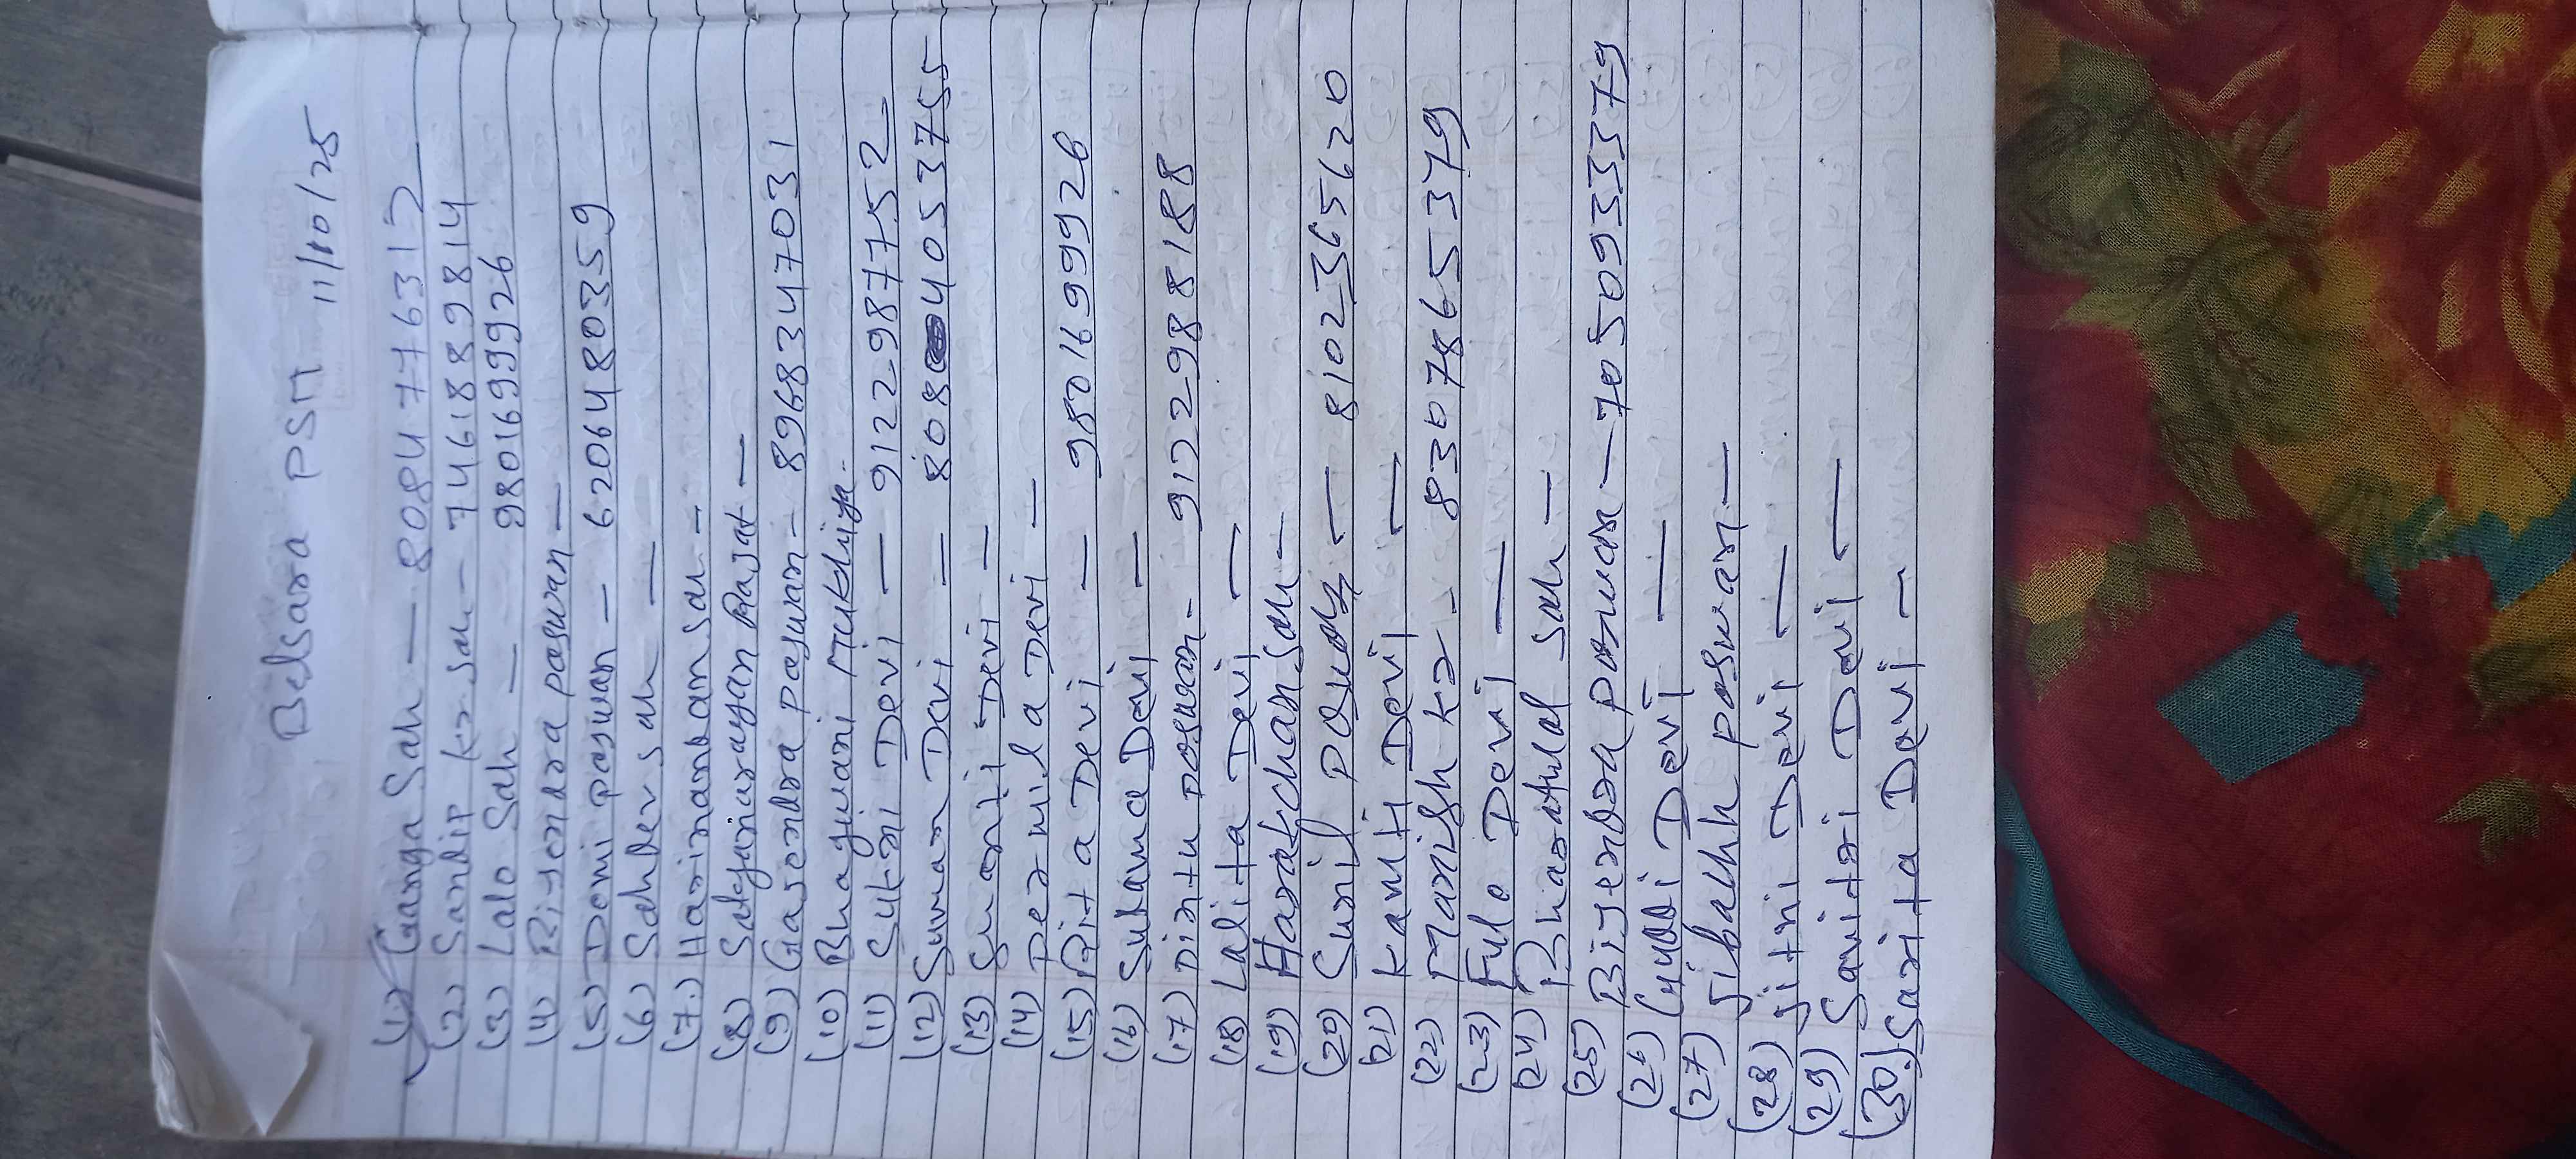 Belsara PSM 11/10/25
(1) Ganga Sah — 8084776312
(2) Sandip kr sah - 7461889814
(3) Lalo Sah — 9801699926
(4) Bijendra paswan —
(5) Domi paswan — 6206480359
(6) Sahdev sah —
(7.) Harinandan sah -
(8) Satyanarayan Rajat —
(9) Gajendra paswan - 8968347031
(10) Bhagwani Mukhiya -
(11) Sukni Devi — 9122987752
(12) Suman Devi — 8084053755
(13) Sumanti Devi —
(14) Permila Devi —
(15) Rita Devi — 9801699926
(16) Sukama Devi —
(17) Dintu paswan - 9122988188
(18) Lalita Devi —
(19) Harakchan sah -
(20) Sunil — 8102365620
(21) kanti Devi —
(22) Manish kr - 8307865379
(23) Fulo Devi —
(24) Bharatlal sah —
(25) Bijendra paswan — 70509333379
(26) Guddi Devi —
(27) Jibachh paswan —
(28) Jitni Devi —
(29) Savitri Devi —
(30.) Sarita Devi —